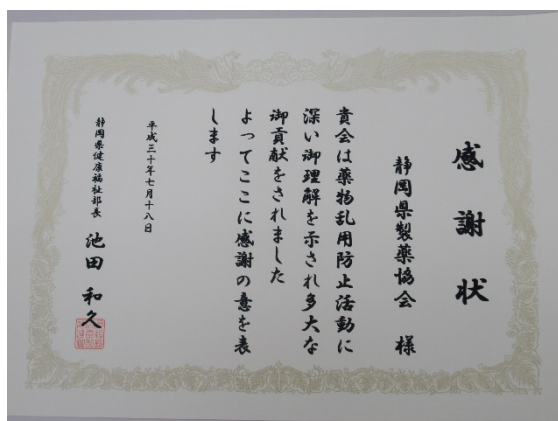 感謝状
静岡県製薬協会 様
貴会は薬物乱用防止活動に
深い御理解を示され多大な
御貢献をされました
よってここに感謝の意を表
します
平成三十年七月十八日
静岡県健康福祉部長 池田 和久